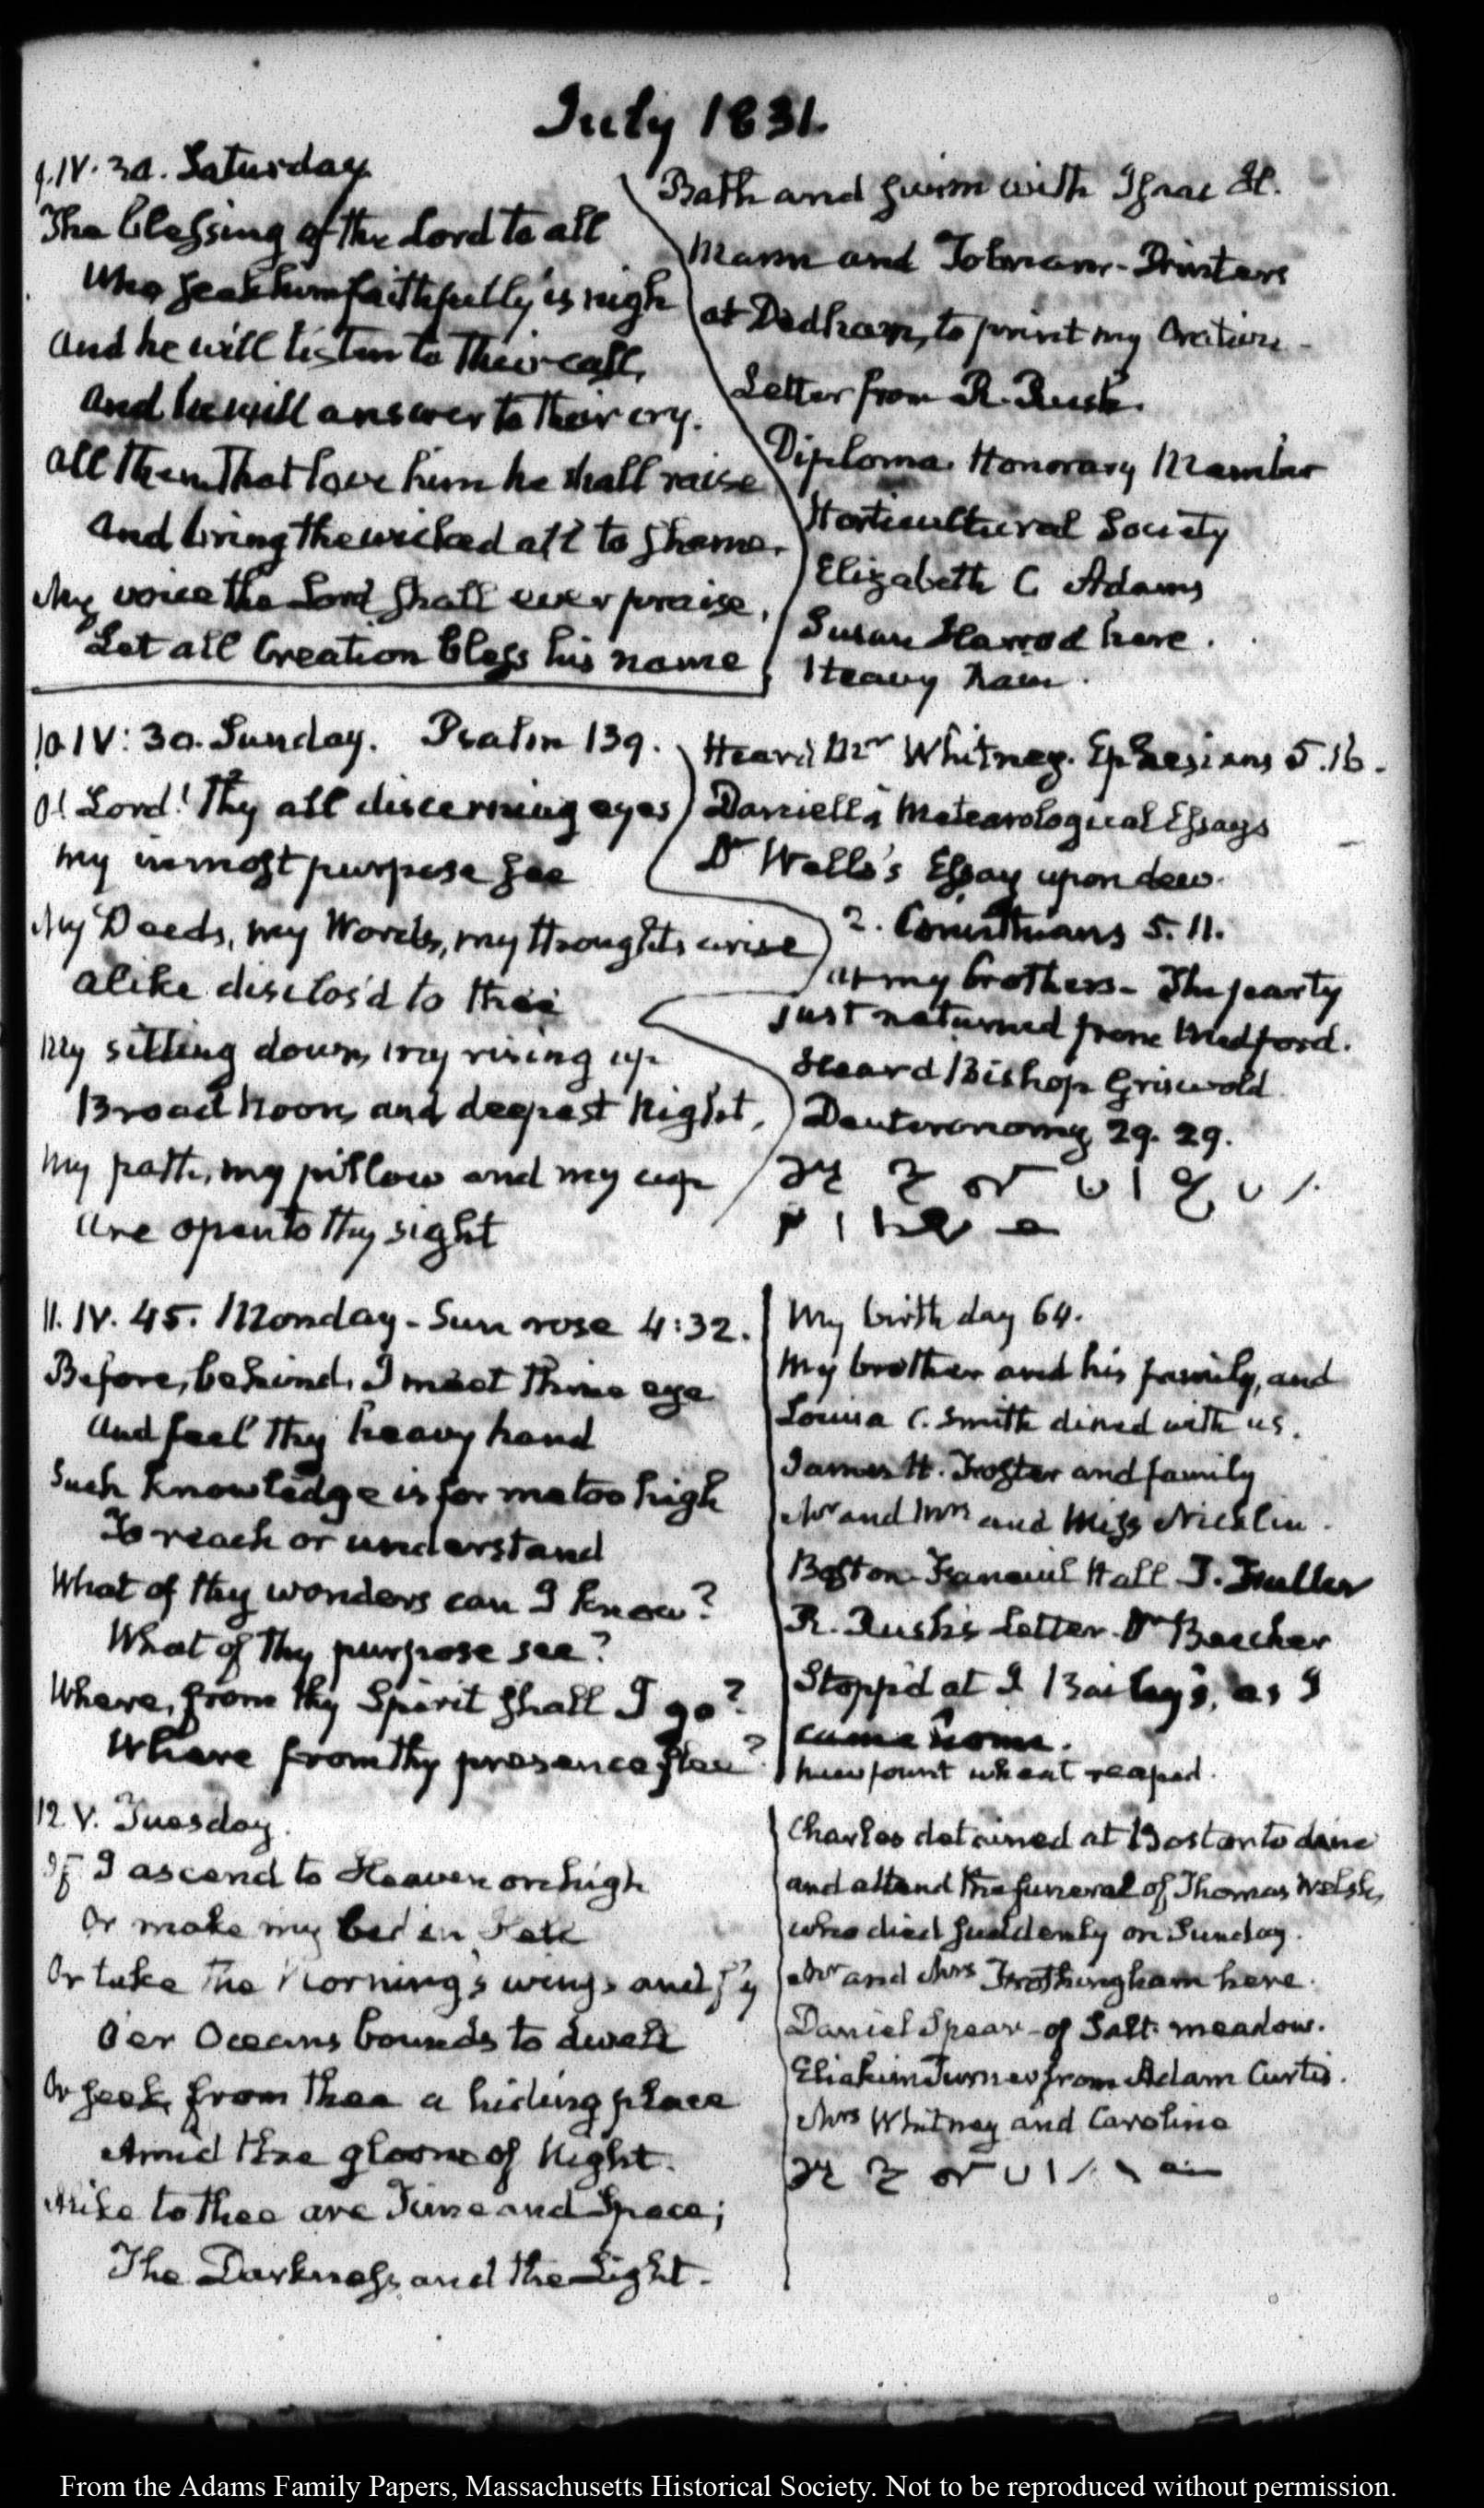 July 1831.
9. IV. 30. Saturday
The blessing of the Lord to all
Who seek him faithfully is nigh
And he will listen to their call,
And he will answer to their cry.
All them that love him he shall raise
And bring the wicked all to shame.
My voice the Lord shall ever praise,
Let all Creation bless his name
Bath and swim with Isaac H.
Mann and Tolman - Printers
at Dedham, to print my Oration -
Letter from R. Rush.
Diploma. Honorary Member
Horticultural Society
Elizabeth C. Adams
Susan Harrod here.
Heavy Rain.
10. IV: 30. Sunday. Psalm 139.
O! Lord! Thy all discerning eyes
My inmost purpose see
My Deeds, my Words, my thoughts arise
Alike disclos'd to thee
My sitting down, my rising up
Broad Noon, and deepest Night,
My path, my pillow and my cup
Are open to thy sight
Heard Mr Whitney. Ephesians 5.16.
Daniell's Meteorological Essays
Dr Wells's Essay upon dew.
2. Corinthians 5. 11.
at my brothers - The party
just returned from Medford.
Heard Bishop Griswold
Deuteronomy 29. 29.
11. IV. 45. Monday - Sun rose 4:32.
Before, behind, I meet thine eye
And feel thy heavy hand
Such knowledge is for me too high
To reach or understand
What of thy wonders can I know?
What of thy purpose see?
Where, from thy Spirit shall I go?
Where from thy presence flee?
My birth day 64.
My brother and his family, and
Louisa C. Smith dined with us.
James H. Foster and family
Mr and Mrs and Miss Nicklin.
Boston Faneuil Hall T. Fuller
R. Rush's Letter. Dr Beecher
Stopp'd at I Bailey's, as I
came home.
wheat reaped.
12. V. Tuesday.
If I ascend to Heaven on high
Or make my bed in Hell
Or take the Morning's wings and fly
O'er Oceans bounds to dwell
Or seek, from thee a hiding place
Amid the gloom of Night.
Alike to thee are Time and Space;
The Darkness, and the Light.
Charles detained at Boston to dine
and attend the funeral of Thomas Welsh,
who died suddenly on Sunday.
Mr and Mrs Frothingham here.
Daniel Spear - of Salt meadow.
Eliakim Turner from Adam Curtis.
Mrs Whitney and Caroline
From the Adams Family Papers, Massachusetts Historical Society. Not to be reproduced without permission.